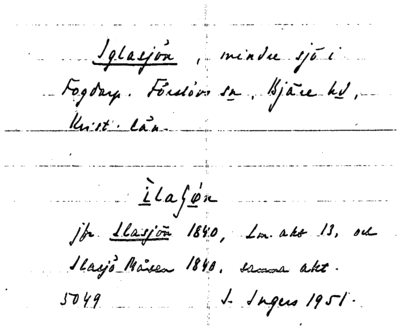 Iglasjön, mindre sjö i
Fogdarp. Förslövs sn, Bjäre hd,
Krist. län.
ìlaʃøn
jfr Ilasjön 1840, Lm. akt 13, och
Ilasjö Mosen 1840, samma akt.
5049 I. Ingers 1951.